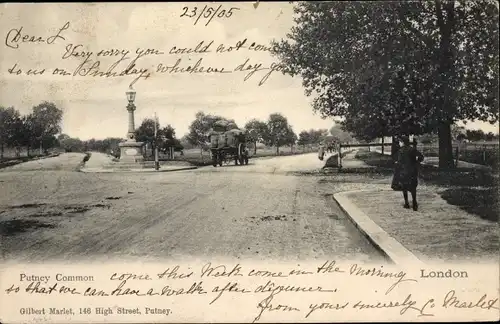 23/5/05
Dear L
Very sorry you could not come
to us on Sunday whichever day
Putney Common
London
come this Week come in the morning
so that we can have a Walk after dinner.
from yours sincerely G Marlet
Gilbert Marlet, 146 High Street, Putney.